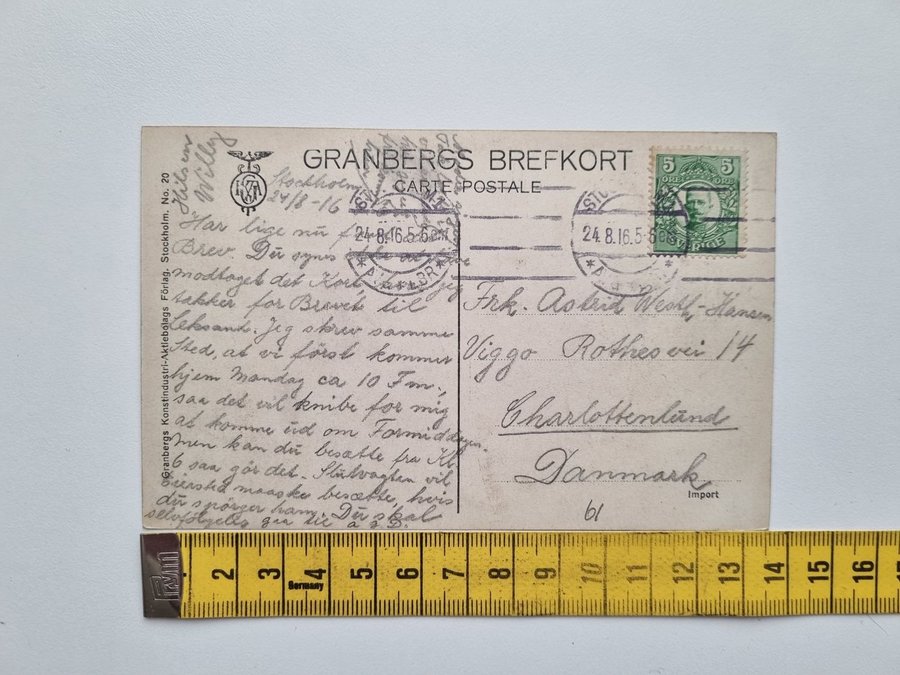 GRANBERGS BREFKORT
CARTE POSTALE
5 5
ÖRE ÖRE
SVERIGE
24.8.16.5-6
24.8.16.5-6
Hilsen
Willy
Stockholm
24/8-16
Har lige nu
Brev. Du synes
modtaget det Kort, jeg
takker for Brevet til
Leksand. Jeg skrev samme
Sted, at vi först kommer
hjem Mandag ca 10 Fm.,
saa det vil knibe for mig
at komme ud om Formiddagen.
Men kan du besætte fra Kl
6 saa gör det. Slutvagten vil
maaske besætte, hvis
du spörger ham. Du skal
selvfölgelig gaa til
Frk. Astrid Westh-Hansen
Viggo Rothesvei 14
Charlottenlund
Danmark
Import
61
Granbergs Konstindustri-Aktiebolags Förlag. Stockholm. No. 20
1 2 3 4 5 6 7 8 9 10 11 12 13 14 15 16 17
Germany